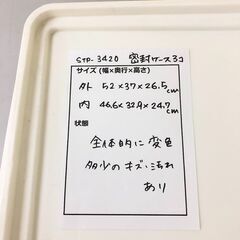 STP-3420 密封ケース3コ
サイズ(幅×奥行×高さ)
外 52×37×26.5cm
内 46.6×32.9×24.7cm
状態
全体的に変色
多少のキズ・汚れ
あり